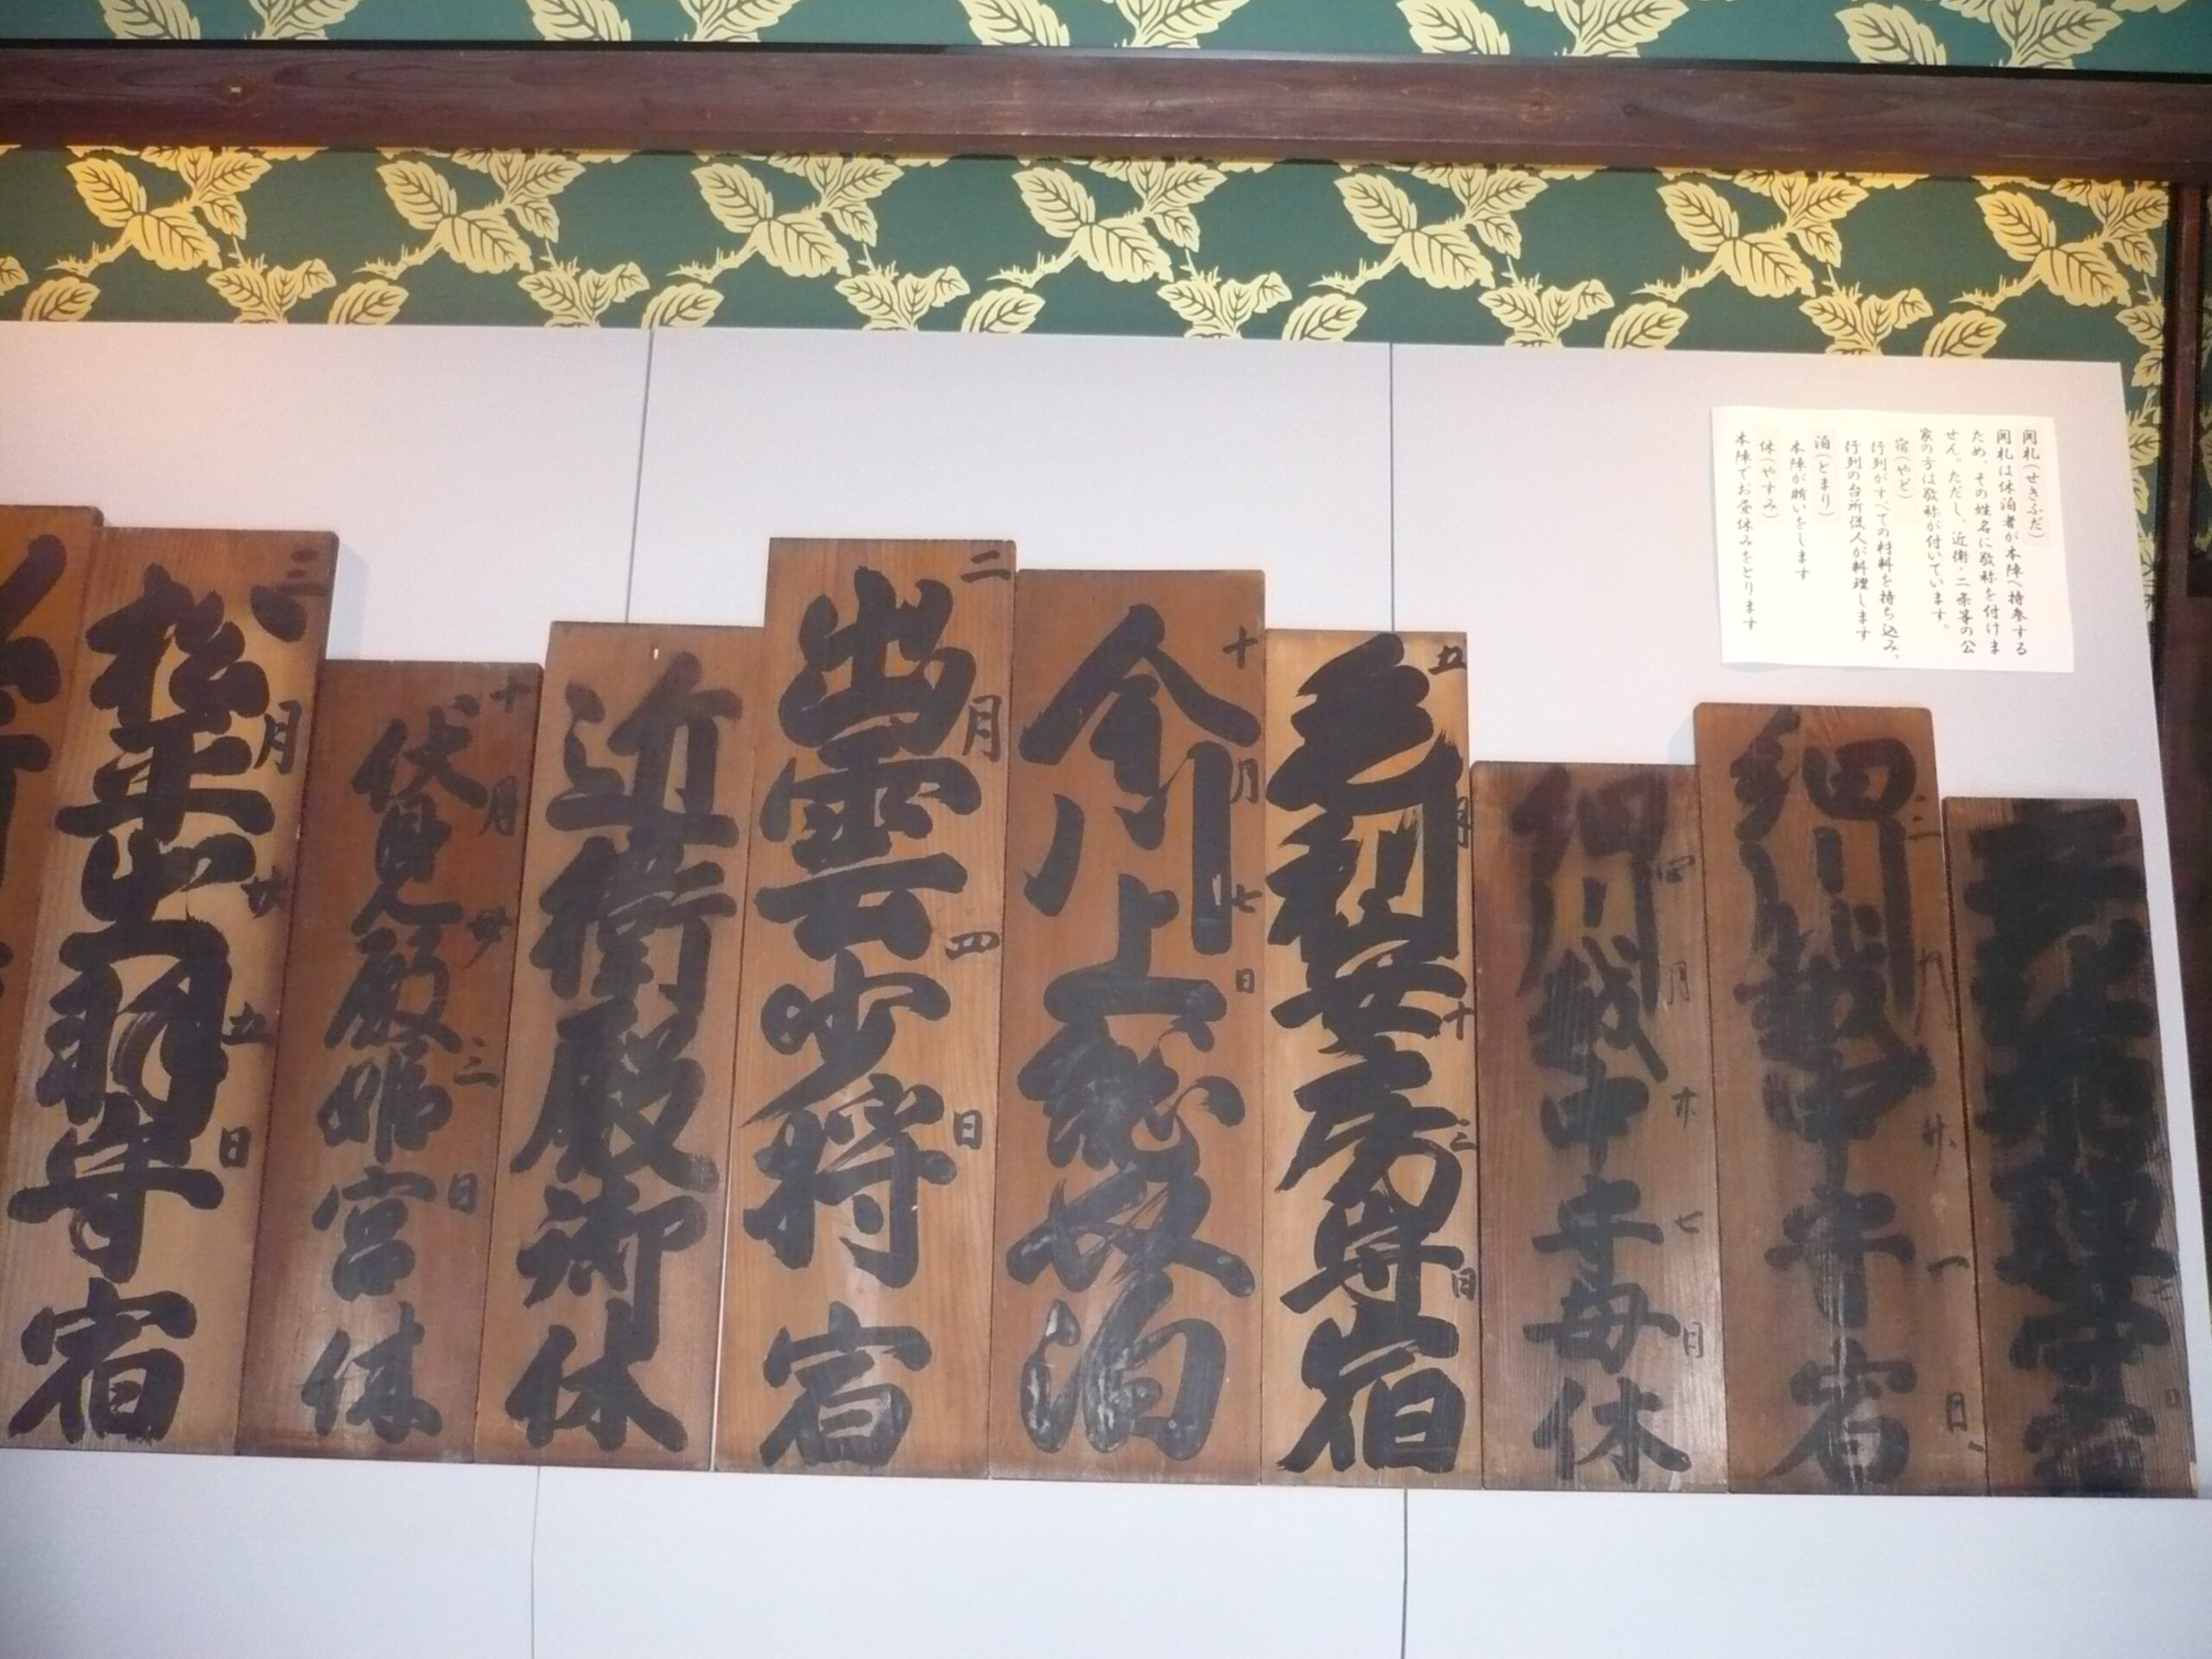 関札(せきふだ)
関札は休泊者が本陣へ持参する
ため、その姓名に敬称を付けま
せん。ただし、近衛・二条等の公
家の方は敬称が付いています。
宿(やど)
行列がすべての材料を持ち込み、
行列の台所役人が料理します
泊(とまり)
本陣が賄いをします
休(やすみ)
本陣でお昼休みをとります
細川越中守宿
四月 七日
細川越中守母休
五月十三日
毛利安房守宿
十月七日
今川上総介泊
二月四日
出雲少将宿
近衛殿御休
十月 三日
伏見殿姫宮休
三月廿五日
松平出羽守宿